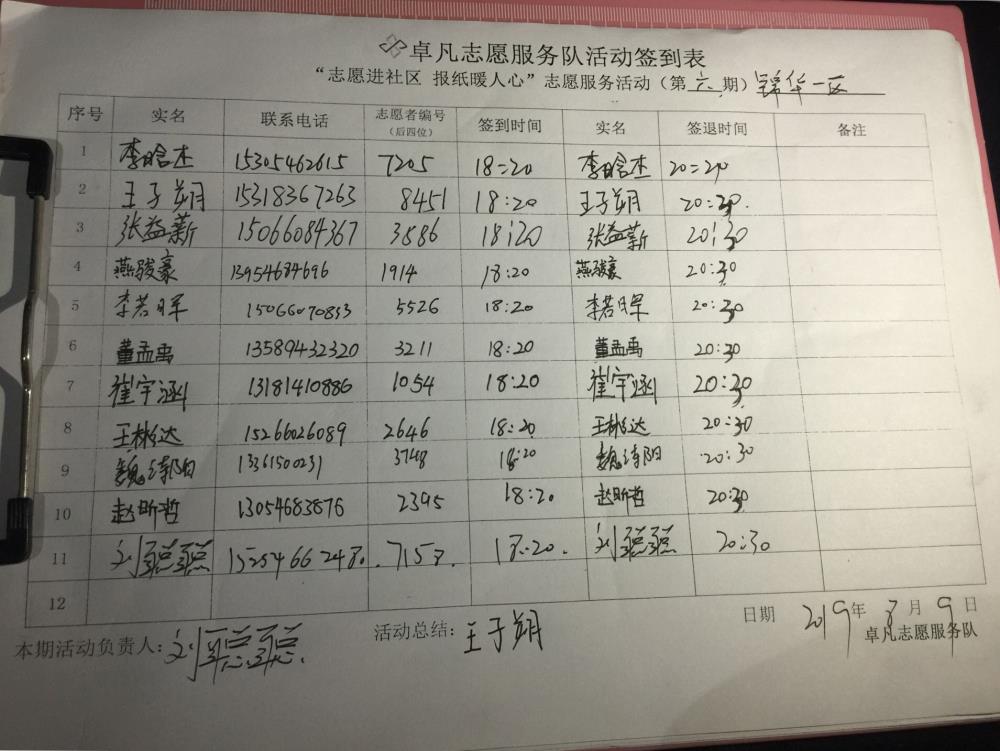 卓凡志愿服务队活动签到表
“志愿进社区 报纸暖人心”志愿服务活动（第六期）锦华一区
序号 实名 联系电话 志愿者编号（后四位） 签到时间 实名 签退时间 备注
1 李晗杰 15305462615 7205 18:20 李晗杰 20:20
2 王子朔 15318367263 8451 18:20 王子朔 20:30.
3 张益薪 15066084367 3886 18:20 张益薪 20:30
4 燕骏豪 13954684696 1914 18:20 燕骏豪 20:30
5 李若曰军 15066070853 5526 18:20 李若曰军 20:30
6 董孟禹 13589432320 3211 18:20 董孟禹 20:30
7 崔宇涵 13181410886 1054 18:20 崔宇涵 20:30
8 王彬达 15266026089 2646 18:20 王彬达 20:30
9 魏诗阳 13361500231 3748 18:20 魏诗阳 20:30
10 赵昕哲 13054683876 2395 18:20 赵昕哲 20:30
11 刘聪聪 15254662480. 7158. 18:20. 刘聪聪 20:30
12
本期活动负责人：刘聪聪. 活动总结：王子朔 日期 2019年8月9日
卓凡志愿服务队